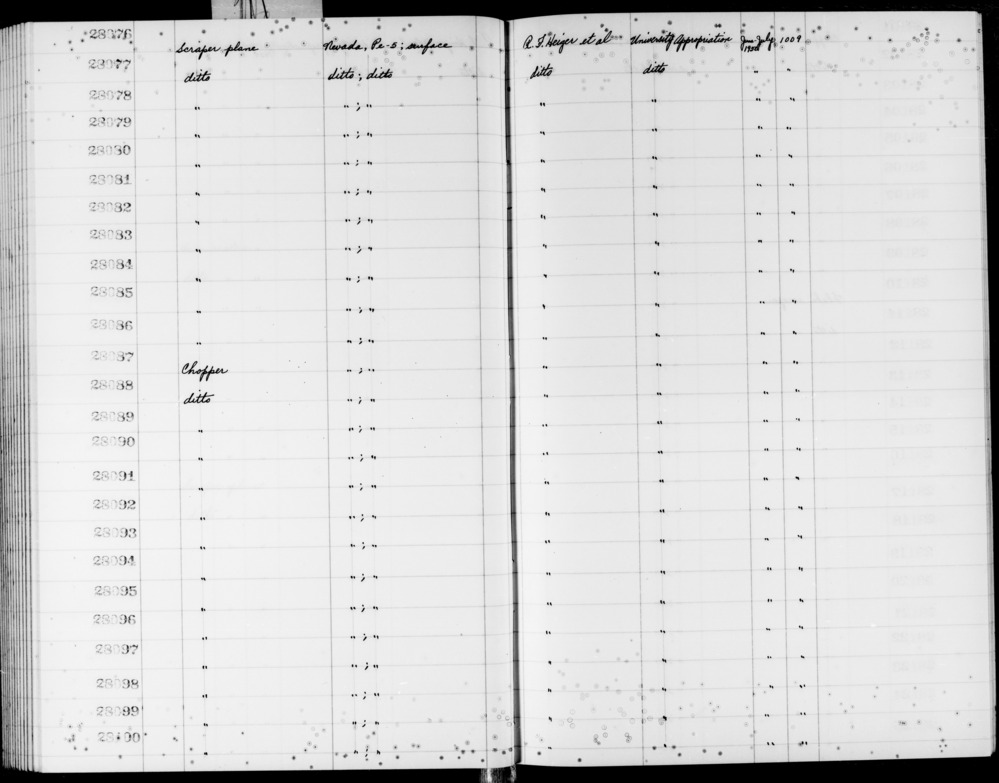 28076 Scraper plane Nevada, Pe-5; surface R. F. Heizer et al University Appropriation June-July 1958 1009
28077 ditto ditto ; ditto ditto ditto " "
28078 " " ; " " " " "
28079 " " ; " " " " "
28080 " " ; " " " " "
28081 " " ; " " " " "
28082 " " ; " " " " "
28083 " " ; " " " " "
28084 " " ; " " " " "
28085 " " ; " " " " "
28086 " " ; " " " " "
28087 Chopper " ; " " " " "
28088 ditto " ; " " " " "
28089 " " ; " " " " "
28090 " " ; " " " " "
28091 " " ; " " " " "
28092 " " ; " " " " "
28093 " " ; " " " " "
28094 " " ; " " " " "
28095 " " ; " " " " "
28096 " " ; " " " " "
28097 " " ; " " " " "
28098 " " ; " " " " "
28099 " " ; " " " " "
28100 " " ; " " " " "